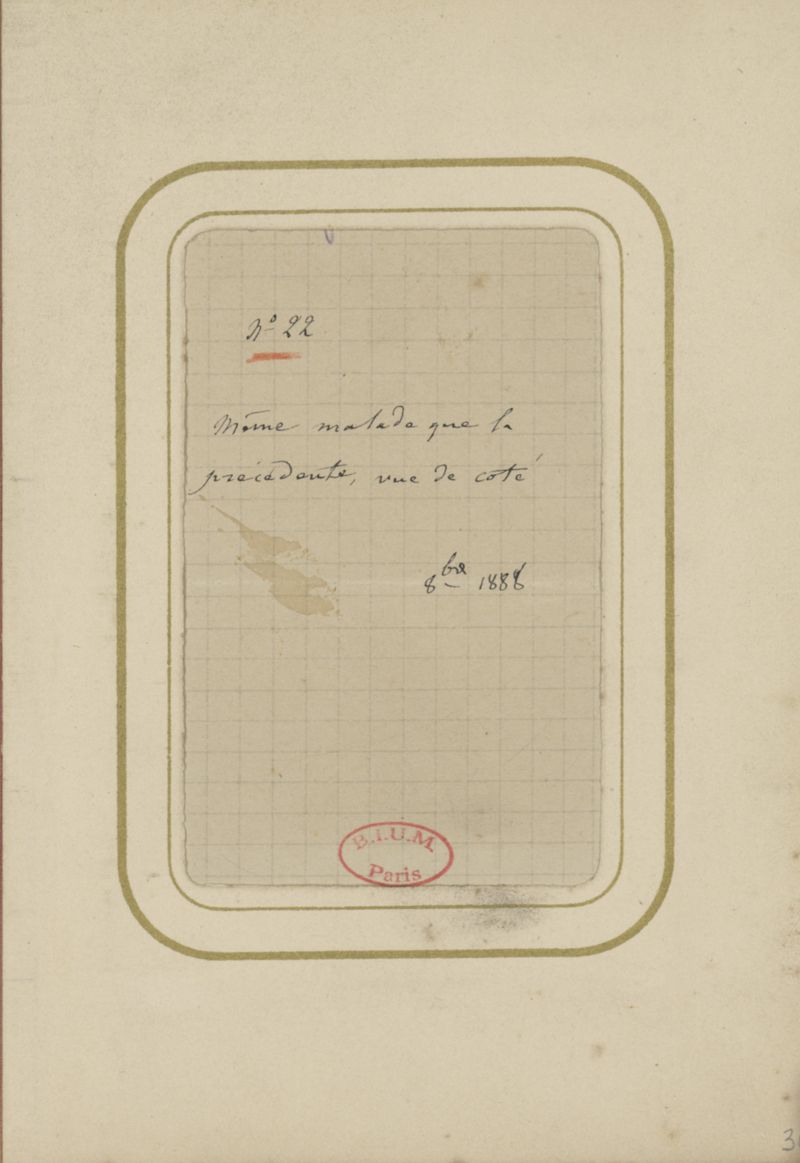 Nº 22
Même malade que la
précédente, vue de coté
8bre 1888
B.I.U.M.
Paris
3